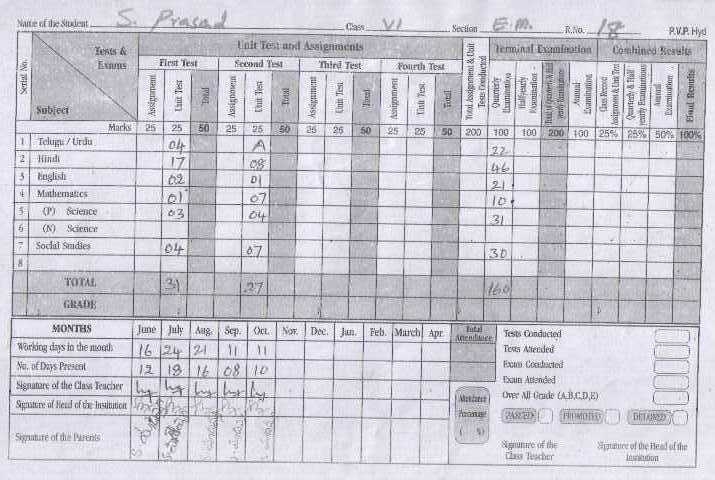 Name of the Student S. Prasad Class VI Section E.M. R.No. 18 P.V.P. Hyd
Serial No. Tests & Exams Subject
Unit Test and Assignments Terminal Examination Combined Results
First Test Second Test Third Test Fourth Test
Assignment Unit Test Total Assignment Unit Test Total Assignment Unit Test Total Assignment Unit Test Total Total Assignment & Unit Tests Conducted Quarterly Examination Half-yearly Examination Annual Examination Class Record Assignment & Unit Test Quarterly & Half yearly Examinations Annual Examination Final Results
Marks 25 25 50 25 25 50 25 25 50 25 25 50 200 100 100 200 100 25% 25% 50% 100%
1 Telugu / Urdu 04 A 22
2 Hindi 17 08 46
3 English 02 01 21
4 Mathematics 01 07 10
5 (P) Science 03 04 31
6 (N) Science
7 Social Studies 04 07 30
8
TOTAL 31 27 160
GRADE
MONTHS June July Aug. Sep. Oct. Nov. Dec. Jan. Feb. March Apr. Total Attendance
Working days in the month 16 24 21 11 11
No. of Days Present 12 18 16 08 10
Signature of the Class Teacher
Signature of Head of the Institution
Signature of the Parents
Attendance Percentage ( %)
Tests Conducted
Tests Attended
Exam Conducted
Exam Attended
Over All Grade (A,B,C,D,E)
PASSED PROMOTED DETAINED
Signature of the Class Teacher Signature of the Head of the Institution